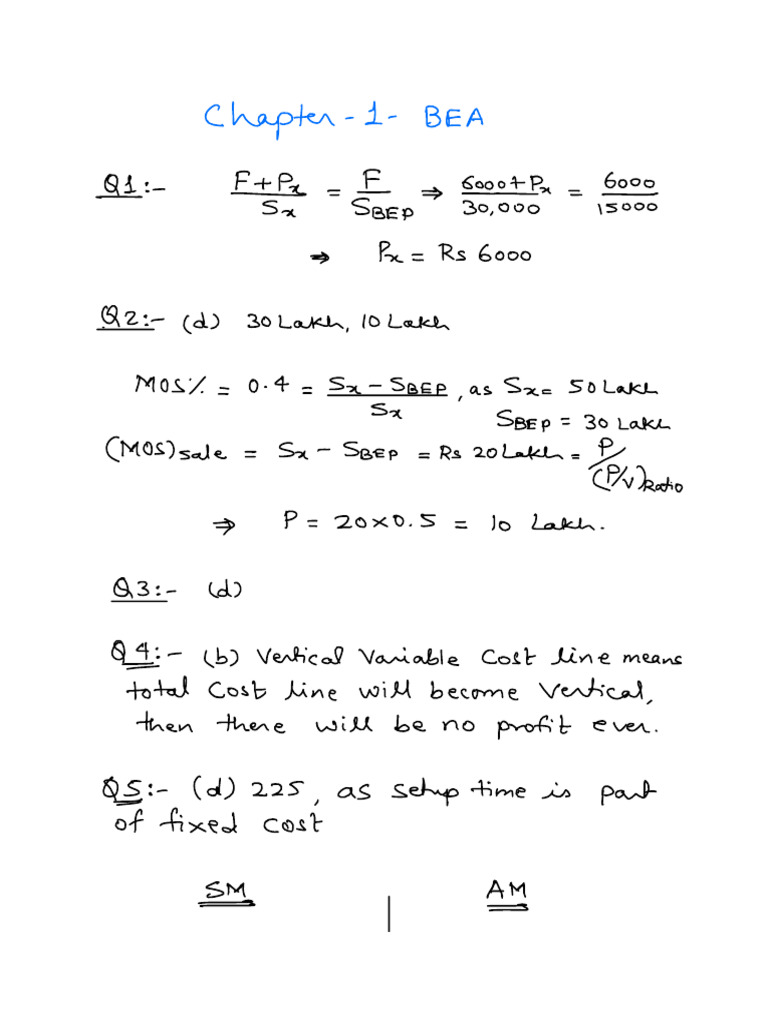 Chapter-1- BEA
Q1:- F+Px/Sx = F/SBEP ⇒ 6000+Px/30,000 = 6000/15000
⇒ Px = Rs 6000
Q2:- (d) 30 Lakh, 10 Lakh
MOS% = 0.4 = Sx-SBEP/Sx, as Sx= 50 Lakh
SBEP = 30 Lakh
(MOS)sale = Sx - SBEP = Rs 20 Lakh = P/(P/V)Ratio
⇒ P = 20x0.5 = 10 Lakh.
Q3:- (d)
Q4:- (b) Vertical Variable Cost line means
total Cost line will become Vertical,
then there will be no profit ever.
Q5:- (d) 225, as setup time is part
of fixed cost
SM | AM